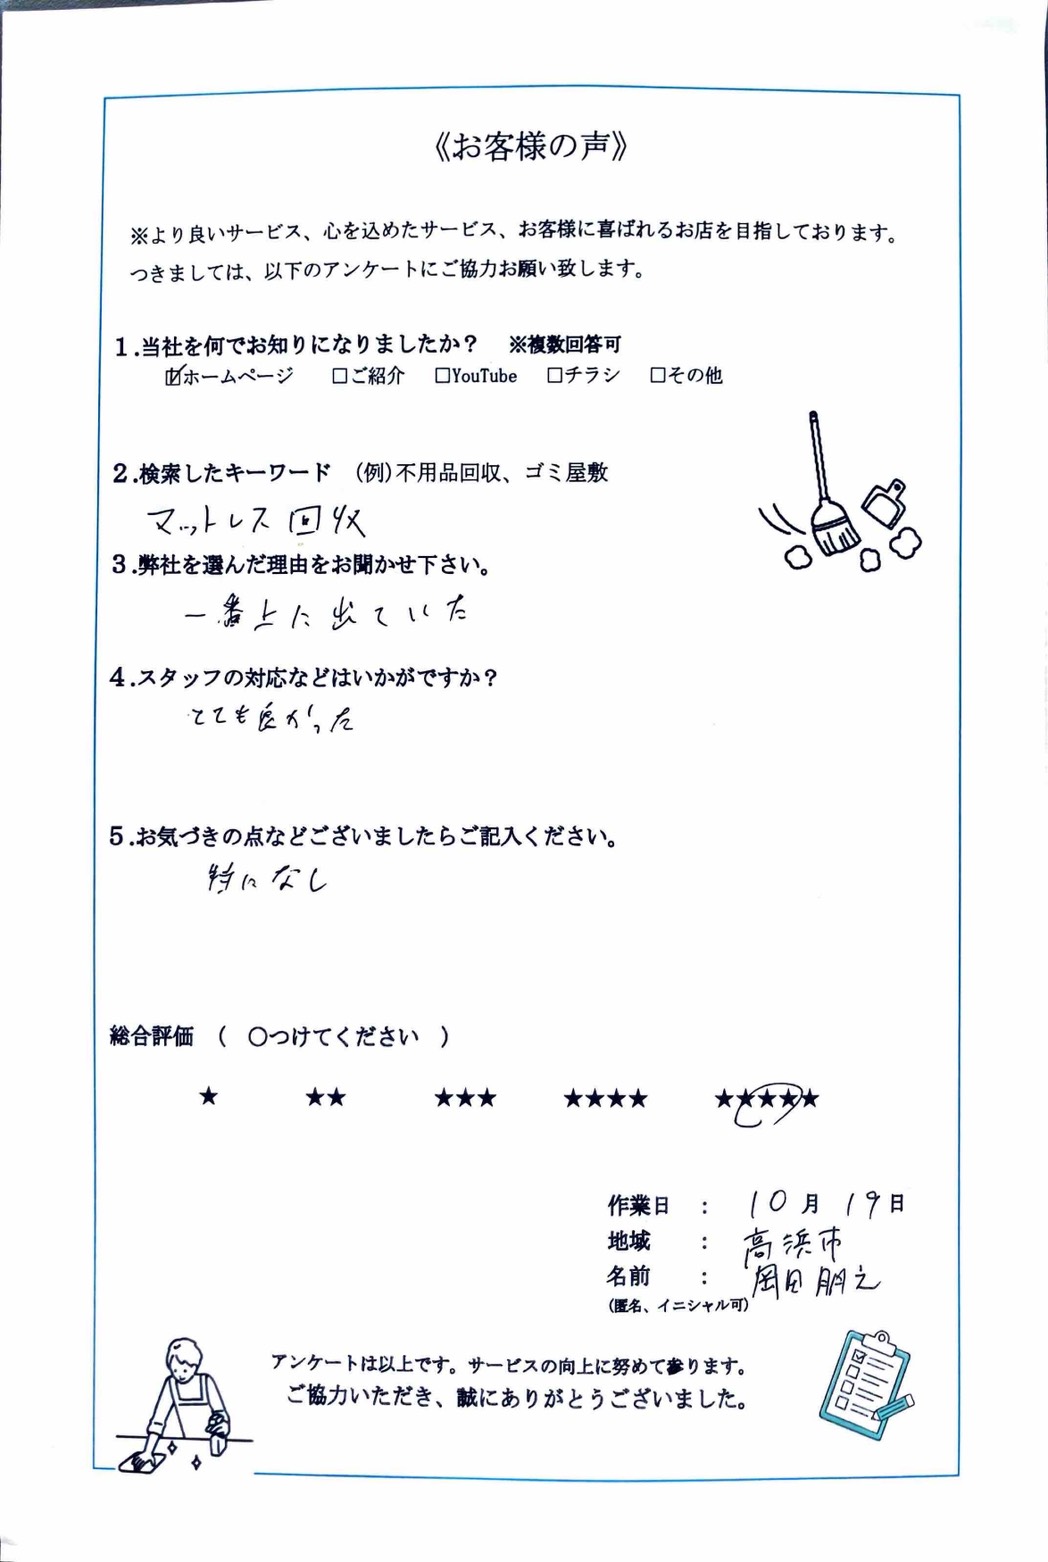 《お客様の声》
※より良いサービス、心を込めたサービス、お客様に喜ばれるお店を目指しております。
つきましては、以下のアンケートにご協力お願い致します。
1.当社を何でお知りになりましたか？　※複数回答可
☑ホームページ　□ご紹介　□YouTube　□チラシ　□その他
2.検索したキーワード　（例）不用品回収、ゴミ屋敷
マットレス回収
3.弊社を選んだ理由をお聞かせ下さい。
一番上に出ていた
4.スタッフの対応などはいかがですか？
とても良かった
5.お気づきの点などございましたらご記入ください。
特になし
総合評価　（　〇つけてください　）
★　★★　★★★　★★★★　★★★★★
作業日　：　10月19日
地域　：　高浜市
名前　：　岡田朋之
（匿名、イニシャル可）
アンケートは以上です。サービスの向上に努めて参ります。
ご協力いただき、誠にありがとうございました。